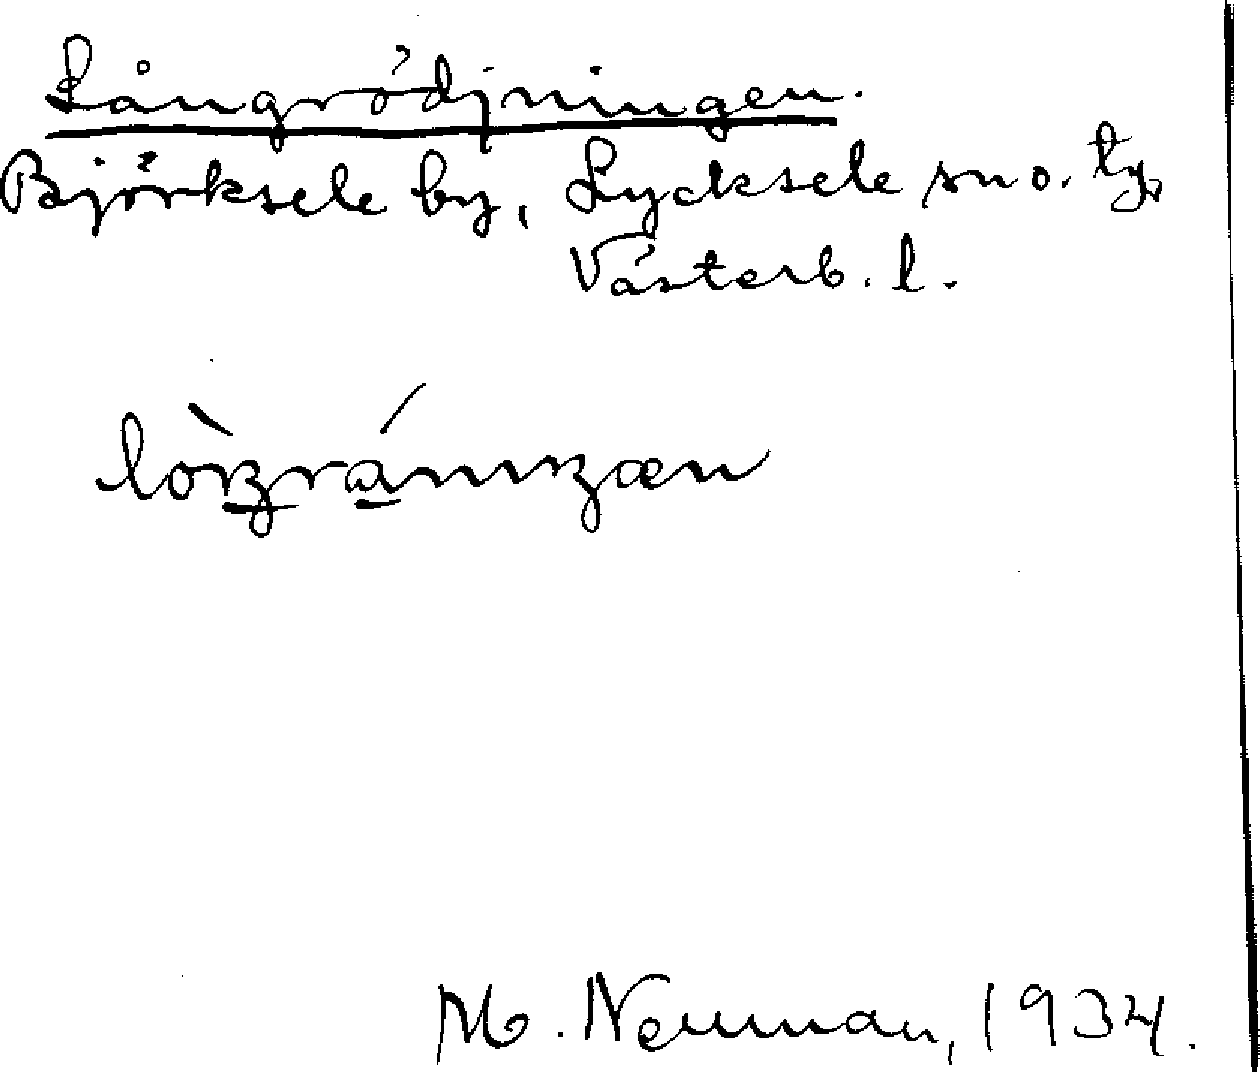 Långrödjningen.
Björksele by, Lycksele sn o. tg,
Västerb. l.
M. Neuman, 1934.